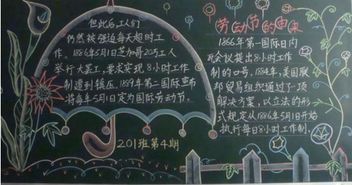 但此后工人们
仍然被强迫每天超时工
作。1886年5月1日芝加哥20万工人
举行大罢工,要求实现8小时工作
制遭到镇压。1889年第二国际宣布
将每年5月1日定为国际劳动节。
201班第4期
劳动节的由来
1866年第一国际日内
瓦会议提出8小时工作
制的口号。1884年,美国联
邦贸易组织通过了一项
解决方案,以立法的形
式规定从1886年5月1日开始
执行每日8小时工作制。